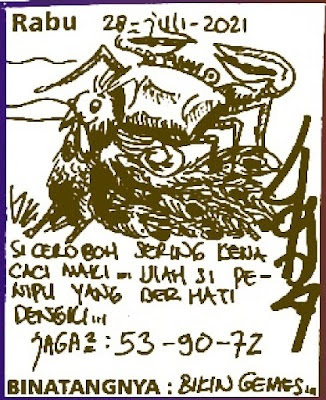 Rabu 28-juli-2021
SI CEROBOH SERING KENA
CACI MAKI ... ULAH SI PE-
NIPU YANG BERHATI
DENGKI...
JAGA2 : 53-90-72
BINATANGNYA : BIKIN GEMES...